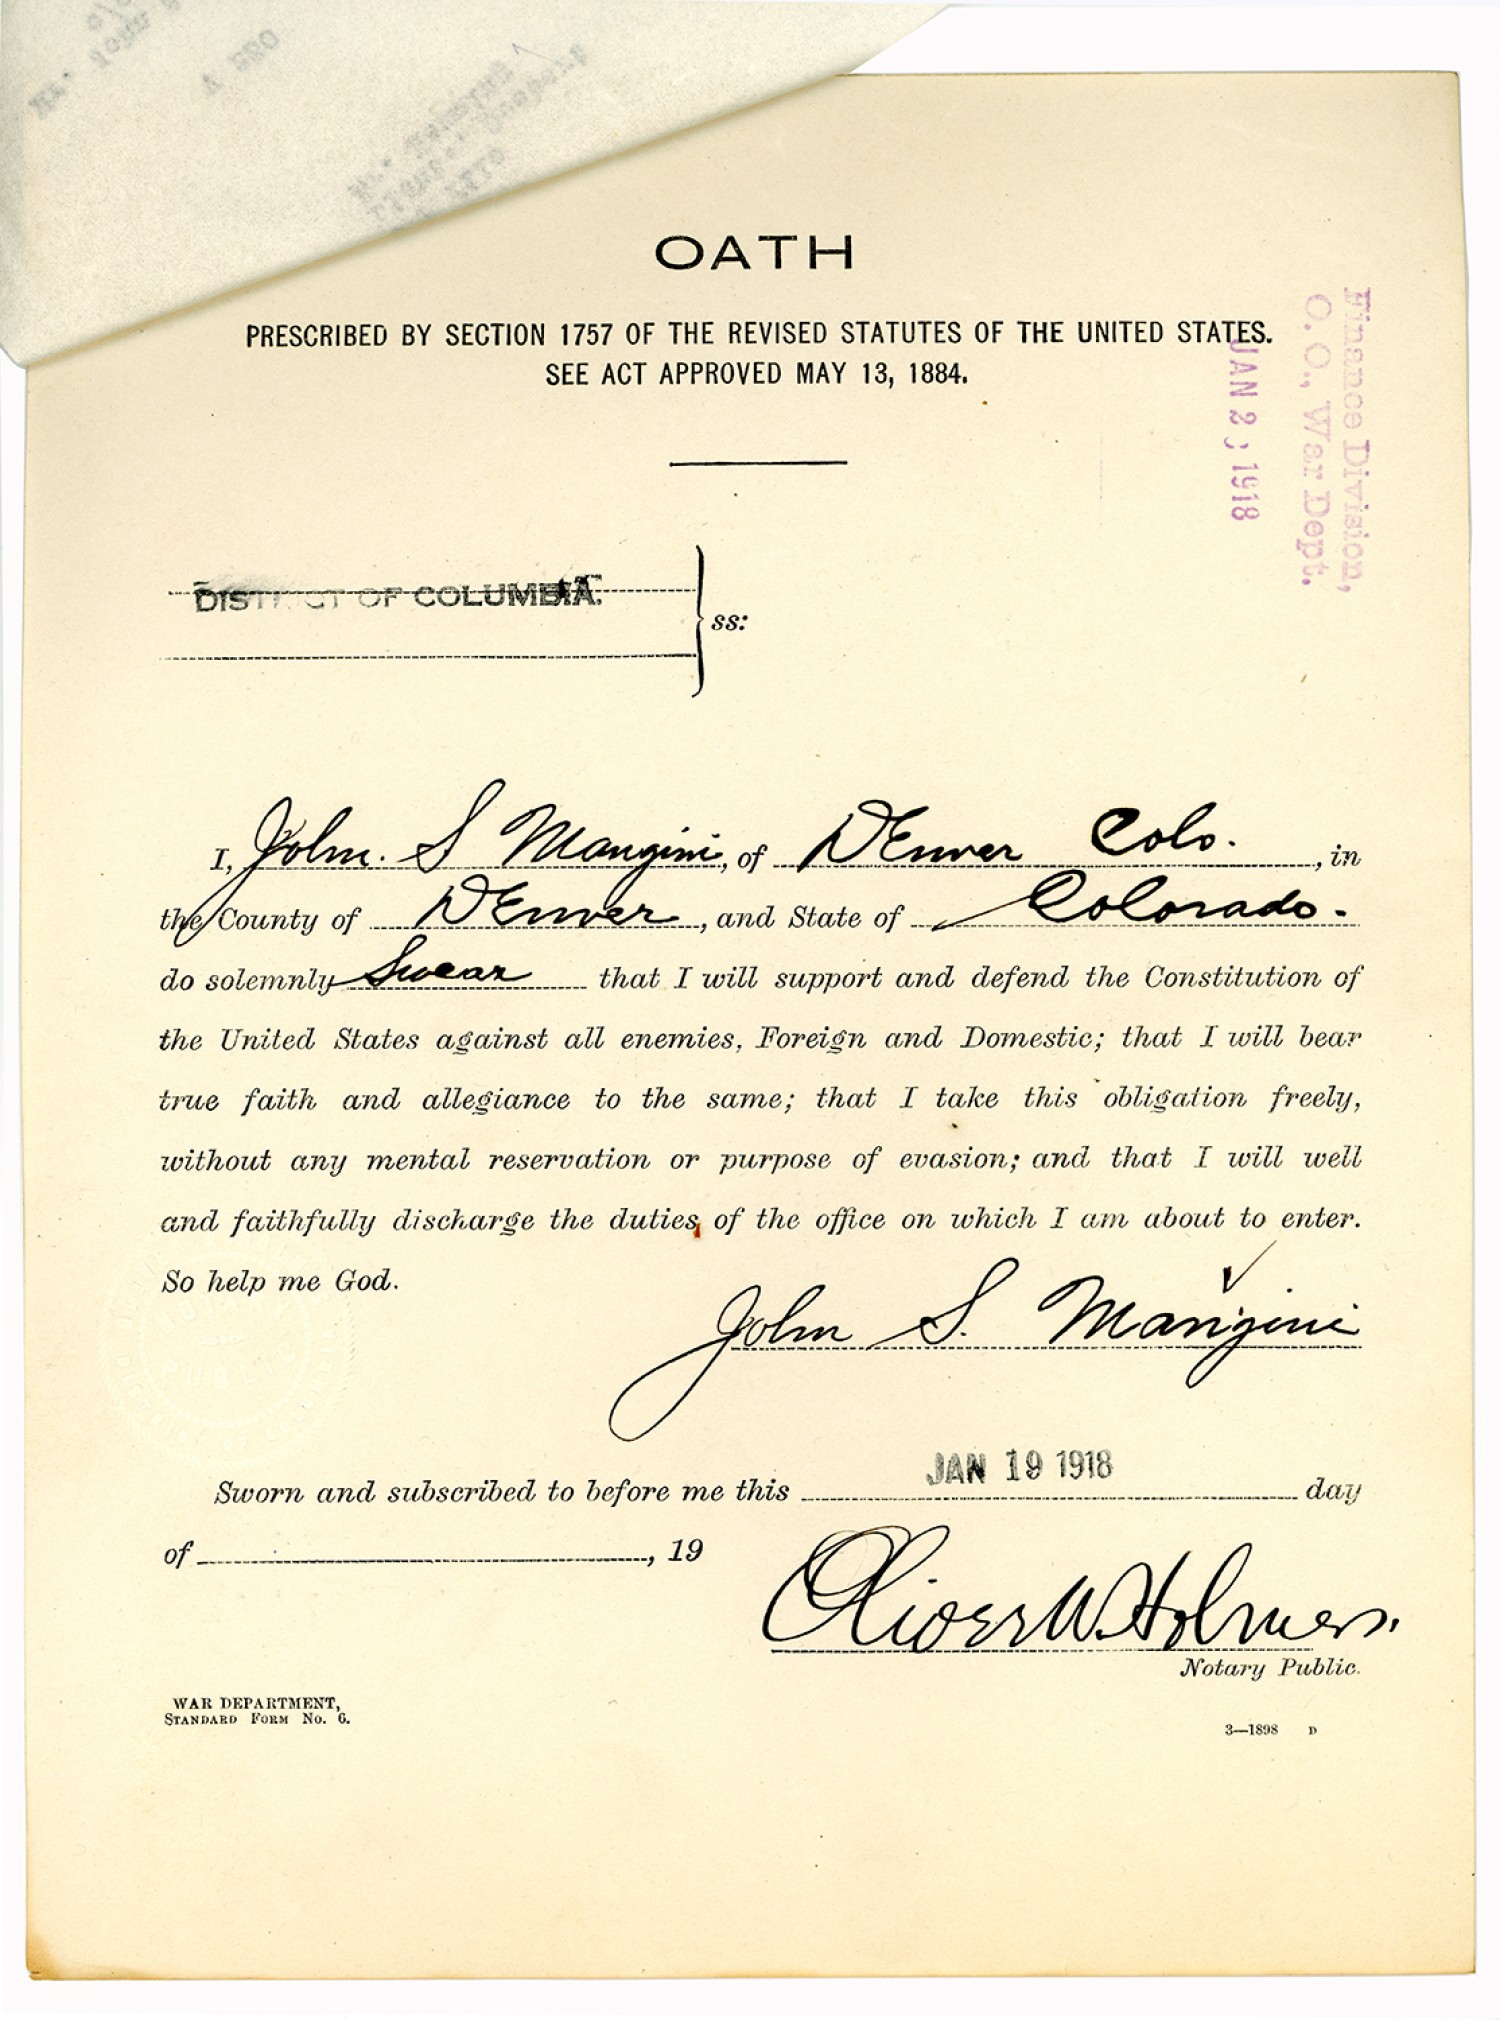 OATH
PRESCRIBED BY SECTION 1757 OF THE REVISED STATUTES OF THE UNITED STATES.
SEE ACT APPROVED MAY 13, 1884.
Finance Division,
O. O., War Dept.
JAN 2 1918
DISTRICT OF COLUMBIA.
ss:
I, John. S Mangini, of Denver Colo. , in
the County of Denver, and State of Colorado.
do solemnly Swear that I will support and defend the Constitution of
the United States against all enemies, Foreign and Domestic; that I will bear
true faith and allegiance to the same; that I take this obligation freely,
without any mental reservation or purpose of evasion; and that I will well
and faithfully discharge the duties of the office on which I am about to enter.
So help me God.
John S. Mangini
Sworn and subscribed to before me this JAN 19 1918 day
of , 19
Oliver W. Holmes.
Notary Public.
WAR DEPARTMENT,
STANDARD FORM NO. 6.
3—1898 D